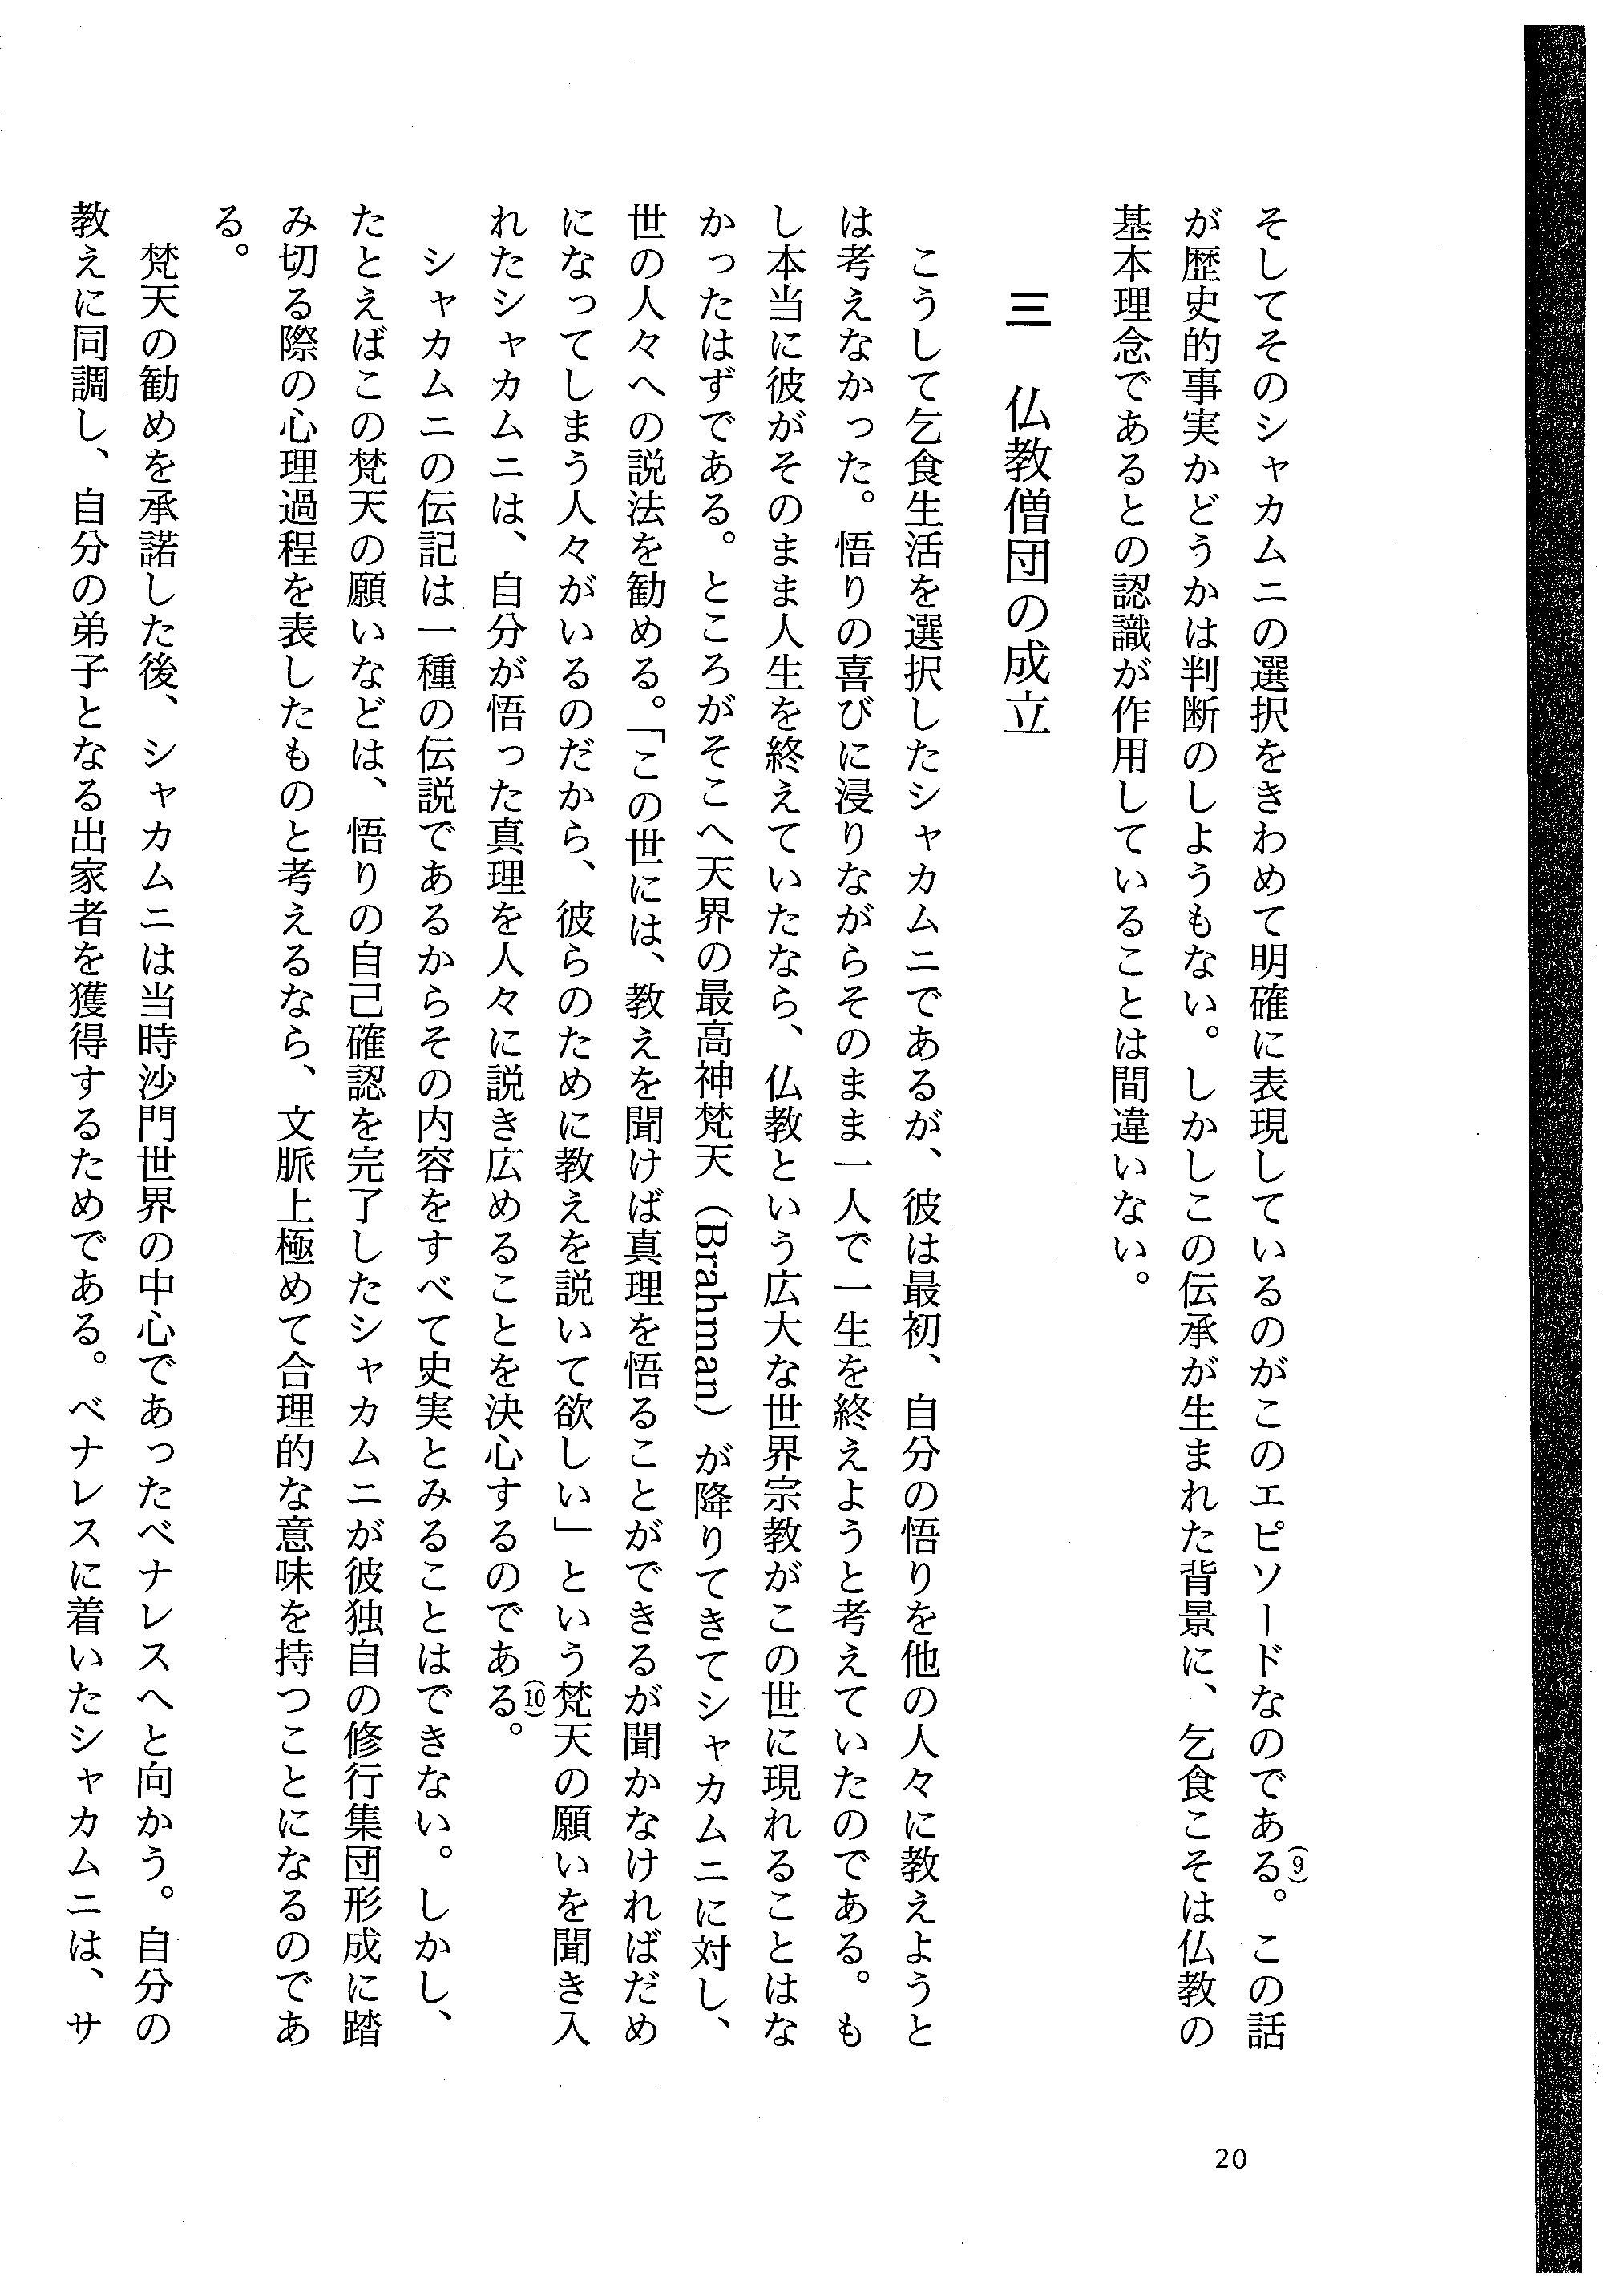 そしてそのシャカムニの選択をきわめて明確に表現しているのがこのエピソードなのである(9)。この話
が歴史的事実かどうかは判断のしようもない。しかしこの伝承が生まれた背景に、乞食こそは仏教の
基本理念であるとの認識が作用していることは間違いない。
三 仏教僧団の成立
こうして乞食生活を選択したシャカムニであるが、彼は最初、自分の悟りを他の人々に教えようと
は考えなかった。悟りの喜びに浸りながらそのまま一人で一生を終えようと考えていたのである。も
し本当に彼がそのまま人生を終えていたなら、仏教という広大な世界宗教がこの世に現れることはな
かったはずである。ところがそこへ天界の最高神梵天（Brahman）が降りてきてシャカムニに対し、
世の人々への説法を勧める。「この世には、教えを聞けば真理を悟ることができるが聞かなければだめ
になってしまう人々がいるのだから、彼らのために教えを説いて欲しい」という梵天の願いを聞き入
れたシャカムニは、自分が悟った真理を人々に説き広めることを決心するのである(10)。
シャカムニの伝記は一種の伝説であるからその内容をすべて史実とみることはできない。しかし、
たとえばこの梵天の願いなどは、悟りの自己確認を完了したシャカムニが彼独自の修行集団形成に踏
み切る際の心理過程を表したものと考えるなら、文脈上極めて合理的な意味を持つことになるのであ
る。
梵天の勧めを承諾した後、シャカムニは当時沙門世界の中心であったベナレスへと向かう。自分の
教えに同調し、自分の弟子となる出家者を獲得するためである。ベナレスに着いたシャカムニは、サ
20